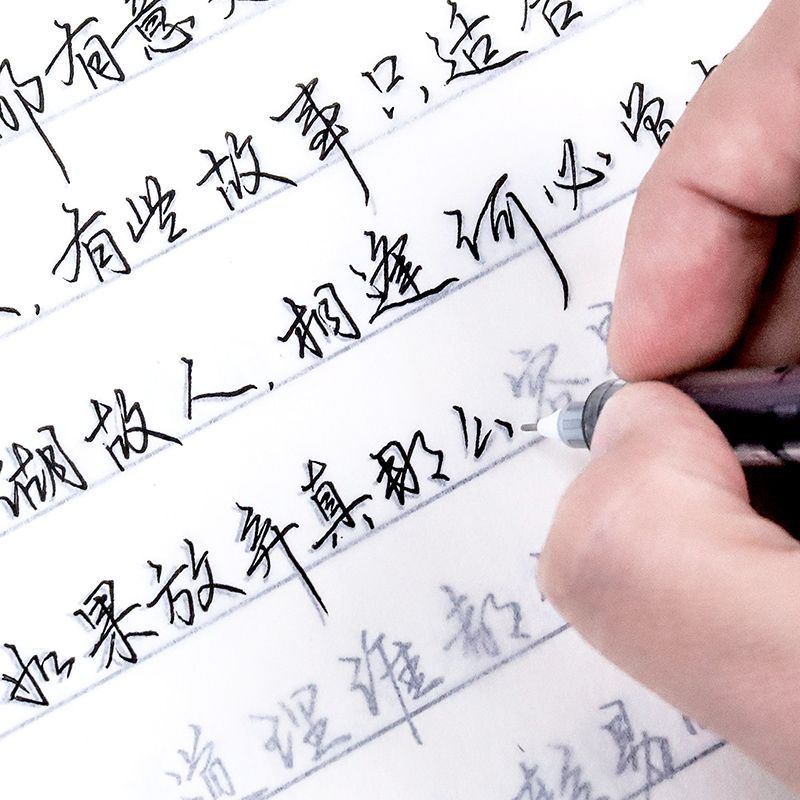 都有意
有些故事只适合
湖故人,相逢何必曾
如果放弃真那么容易
道理谁都